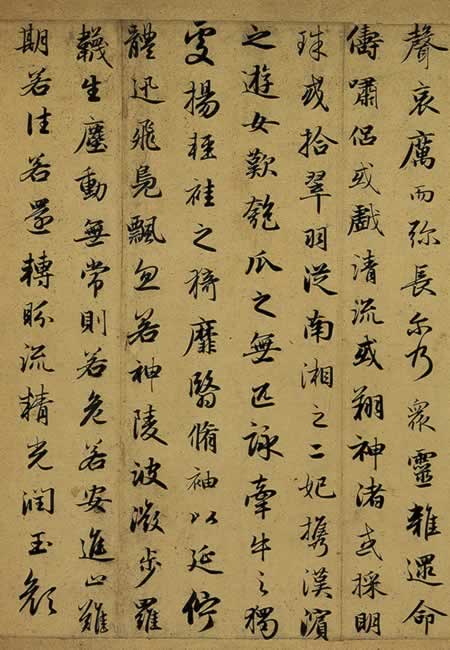 聲哀厲而弥長尔乃衆靈雜遝命
儔嘯侶或戲清流或翔神渚或採明
珠或拾翠羽從南湘之二妃携漢濱
之遊女歎匏瓜之無匹詠牽牛之獨
處揚輕袿之猗靡翳脩袖以延佇
體迅飛鳧飄忽若神陵波微步羅
韈生塵動無常則若危若安進止難
期若往若還轉眄流精光潤玉顏